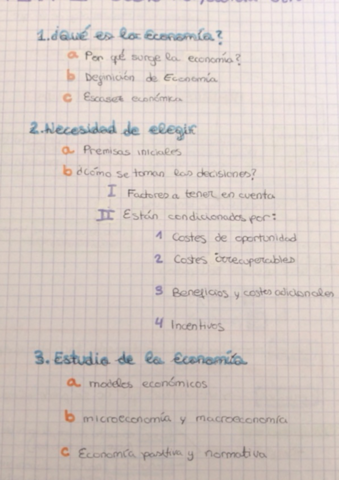 1. ¿Qué es la Economía?
a Por qué surge la economía?
b Definición de Economía
c Escasez económica
2. Necesidad de elegir
a Premisas iniciales
b ¿Cómo se toman las decisiones?
I Factores a tener en cuenta
II Están condicionadas por:
1 Costes de oportunidad
2 Costes irrecuperables
3 Beneficios y costes adicionales
4 Incentivos
3. Estudio de la Economía
a modelos económicos
b microeconomía y macroeconomía
c Economía positiva y normativa